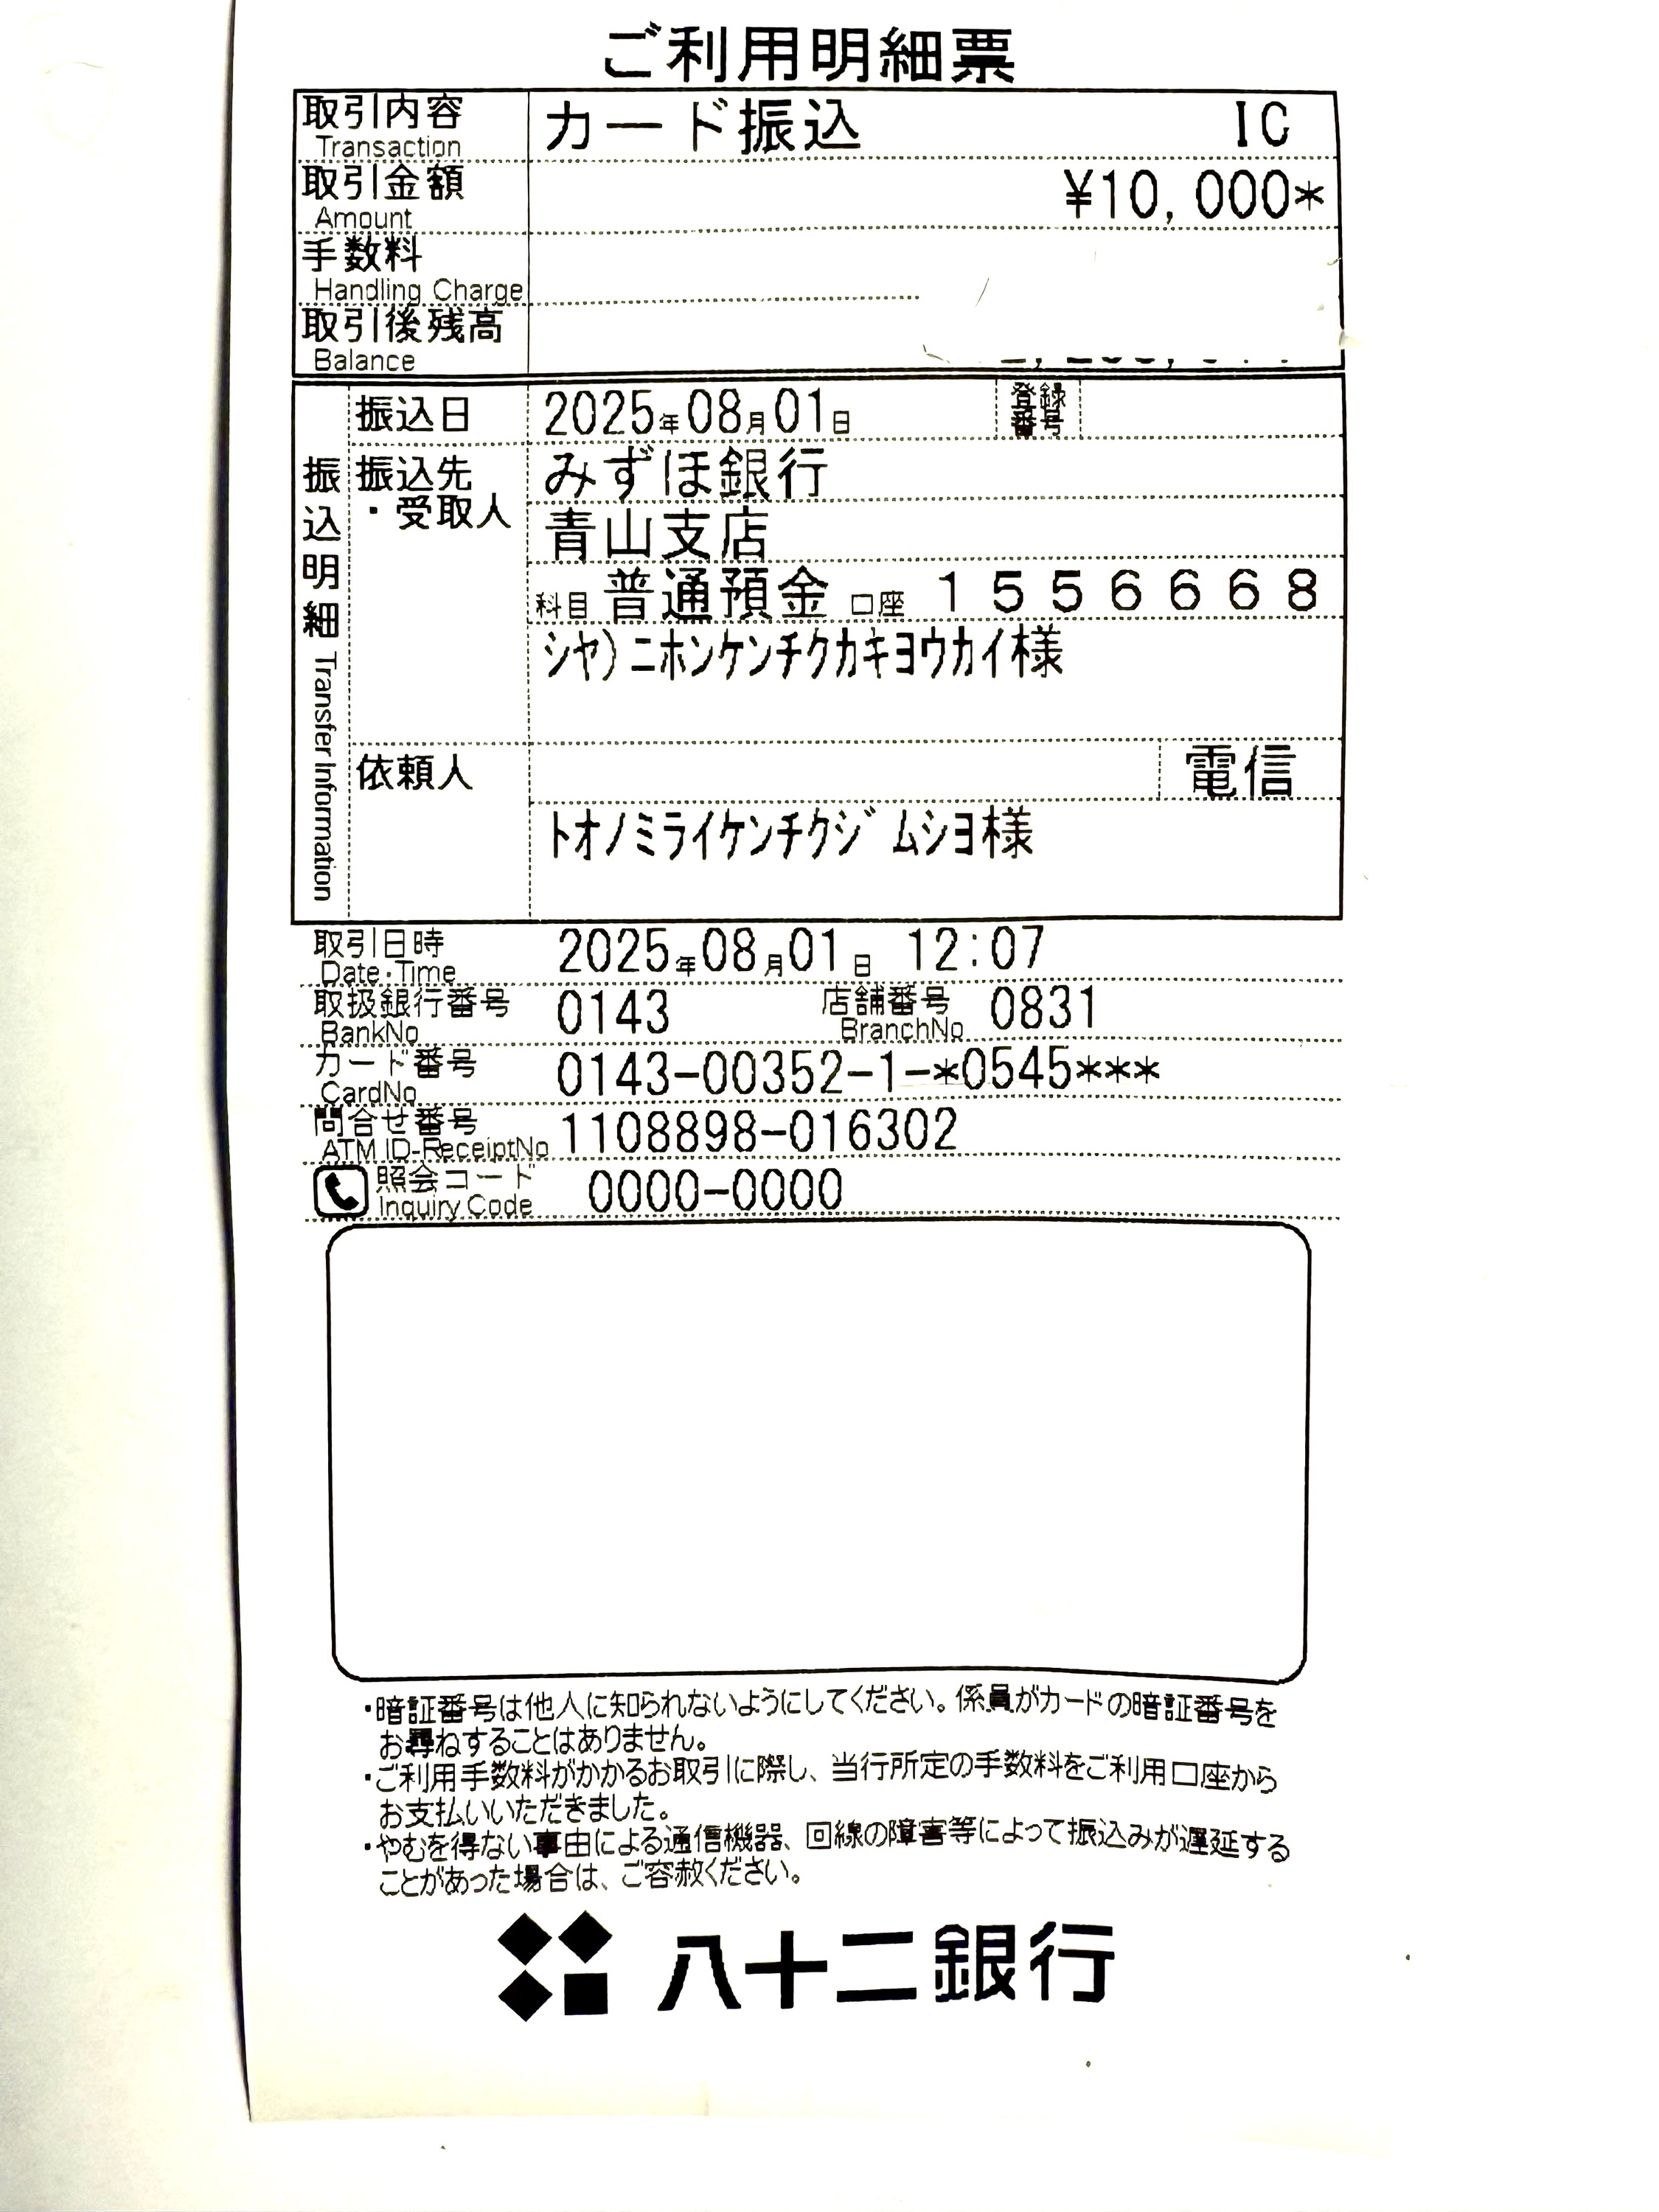 ご利用明細票
取引内容 カード振込 IC
Transaction
取引金額 ¥10,000*
Amount
手数料
Handling Charge
取引後残高
Balance
振込明細 Transfer Information
振込日 2025年08月01日 登録番号
振込先 みずほ銀行
・受取人
青山支店
科目 普通預金 口座 1556668
シヤ)ニホンケンチクカキヨウカイ様
依頼人 電信
トオノミライケンチクジムシヨ様
取引日時 2025年08月01日 12:07
Date・Time
取扱銀行番号 0143 店舗番号 0831
BankNo BranchNo
カード番号 0143-00352-1-*0545***
CardNo
問合せ番号 1108898-016302
ATM ID-ReceiptNo
照会コード 0000-0000
Inquiry Code
・暗証番号は他人に知られないようにしてください。係員がカードの暗証番号を
お尋ねすることはありません。
・ご利用手数料がかかるお取引に際し、当行所定の手数料をご利用口座から
お支払いいただきました。
・やむを得ない事由による通信機器、回線の障害等によって振込みが遅延する
ことがあった場合は、ご容赦ください。
八十二銀行